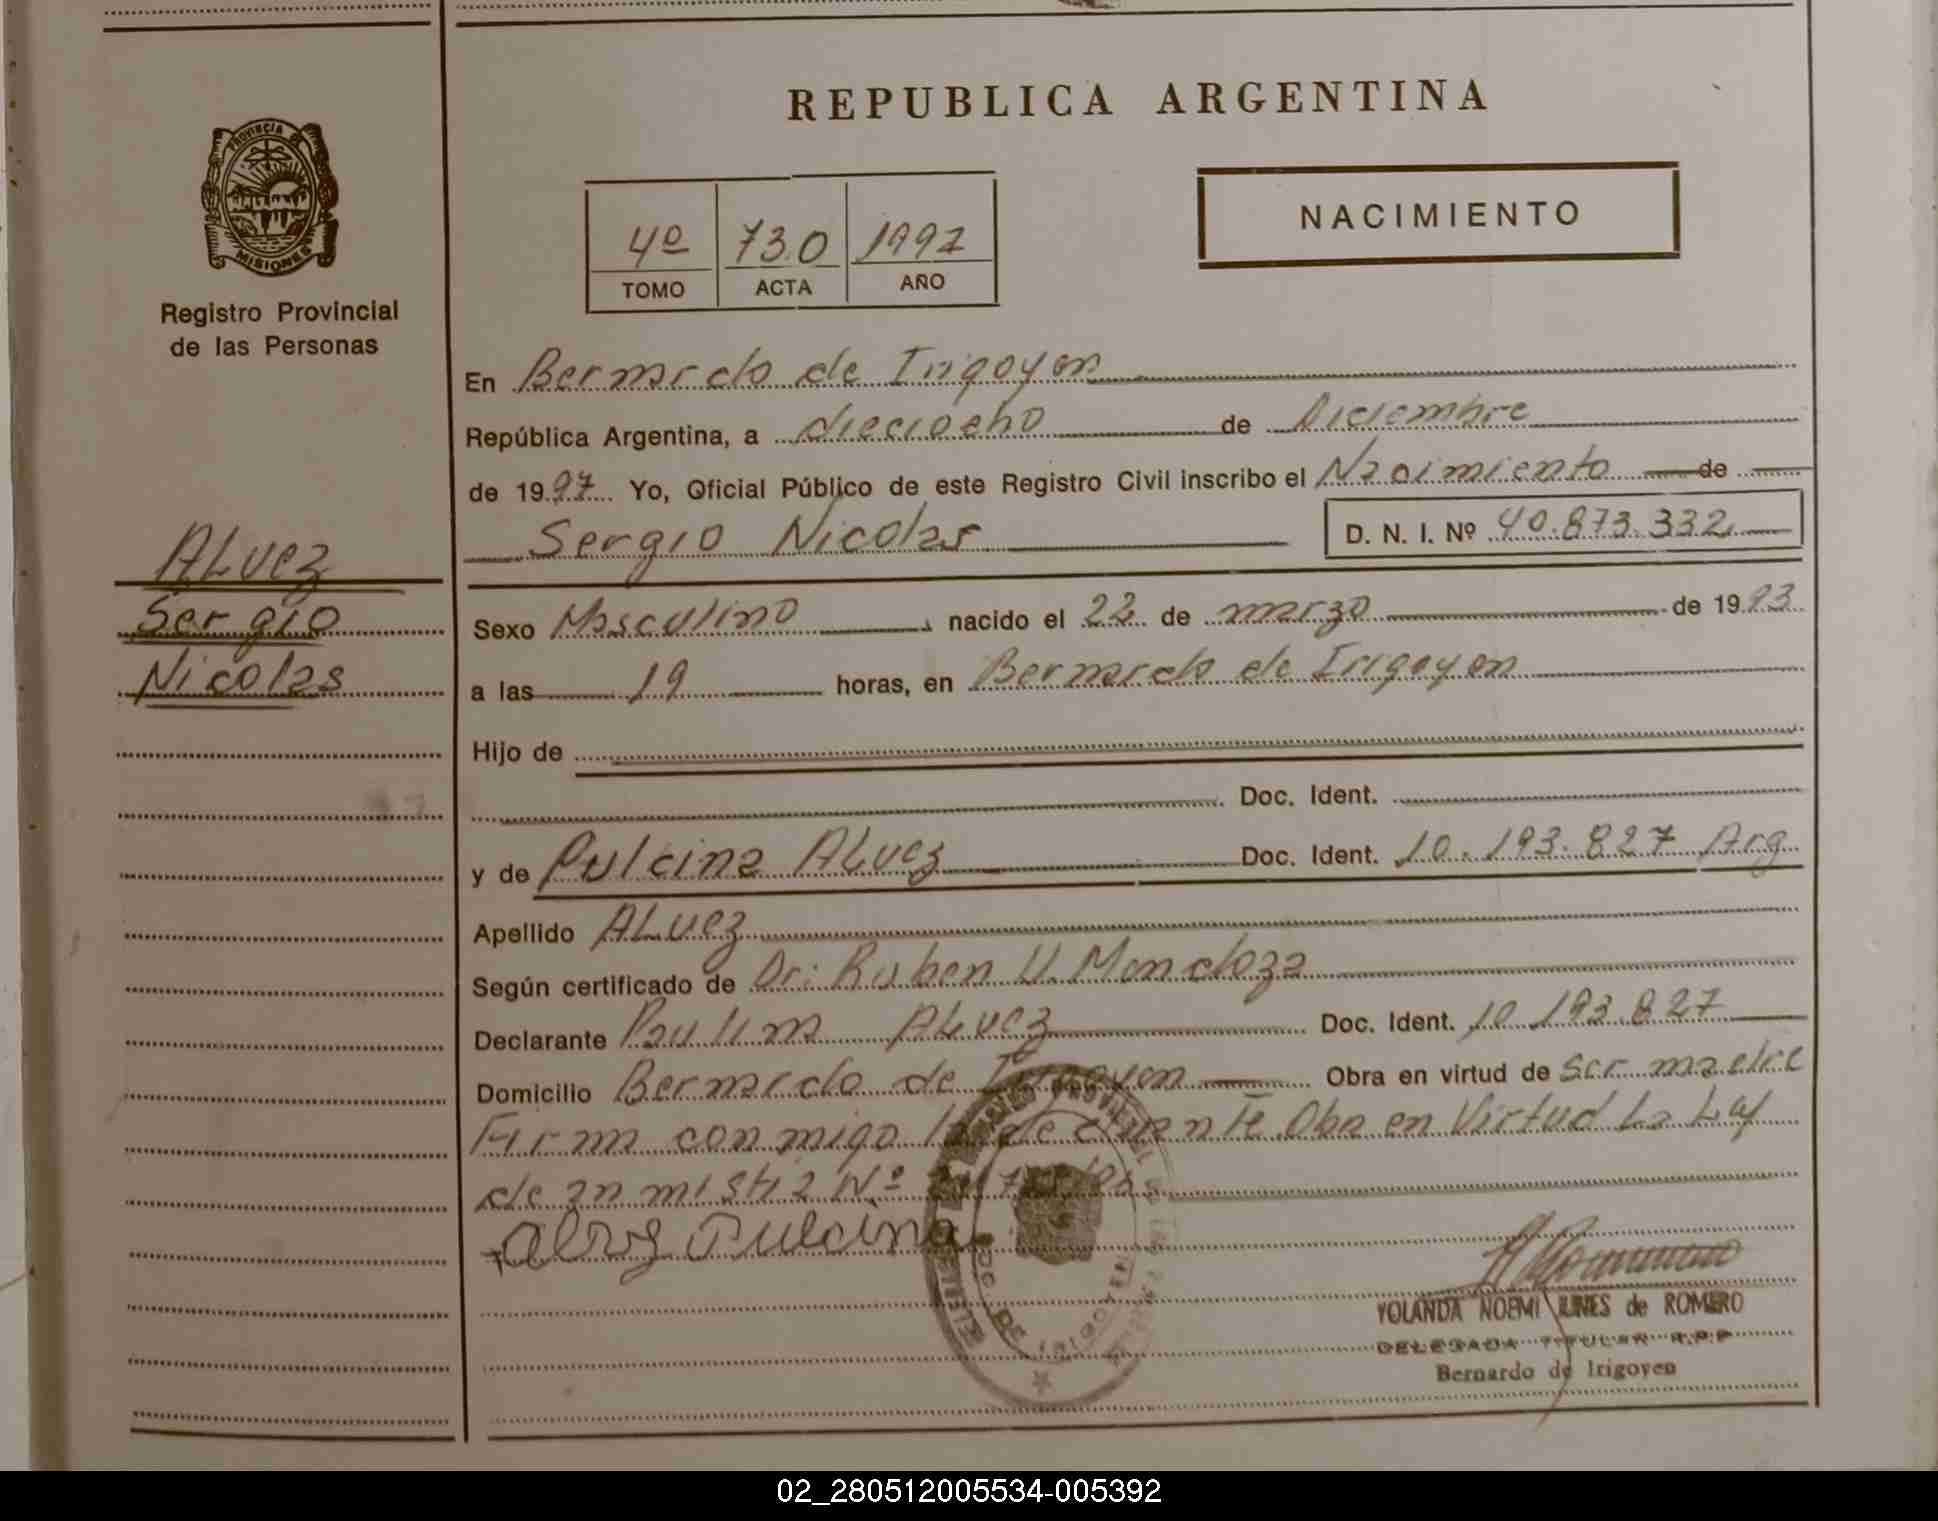 REPUBLICA ARGENTINA
PROVINCIA DE
MISIONES
Registro Provincial
de las Personas
NACIMIENTO
4º 730 1997
TOMO ACTA AÑO
En Bernardo de Irigoyen
República Argentina, a dieciocho de Diciembre
de 1997 Yo, Oficial Público de este Registro Civil inscribo el Nacimiento de
Sergio Nicolas D. N. I. Nº 40.873.332
ALvez
Sergio
Nicolas
Sexo Masculino nacido el 22 de marzo de 1993
a las 19 horas, en Bernardo de Irigoyen
Hijo de
Doc. Ident.
y de Pulcina ALvez Doc. Ident. 10.193.827 Arg
Apellido ALvez
Según certificado de Dr: Ruben U. Mendoza
Declarante ALvez Doc. Ident. 10.193.827
Domicilio Bernardo de Irigoyen Obra en virtud de ser madre
Firma conmigo la declarante Oba en Virtud La Ley
de anmistia Nº
Alvez Pulcina
YOLANDA NOEMI de ROMERO
DELEGADA TITULAR R.P.P
Bernardo de Irigoyen
02_280512005534-005392